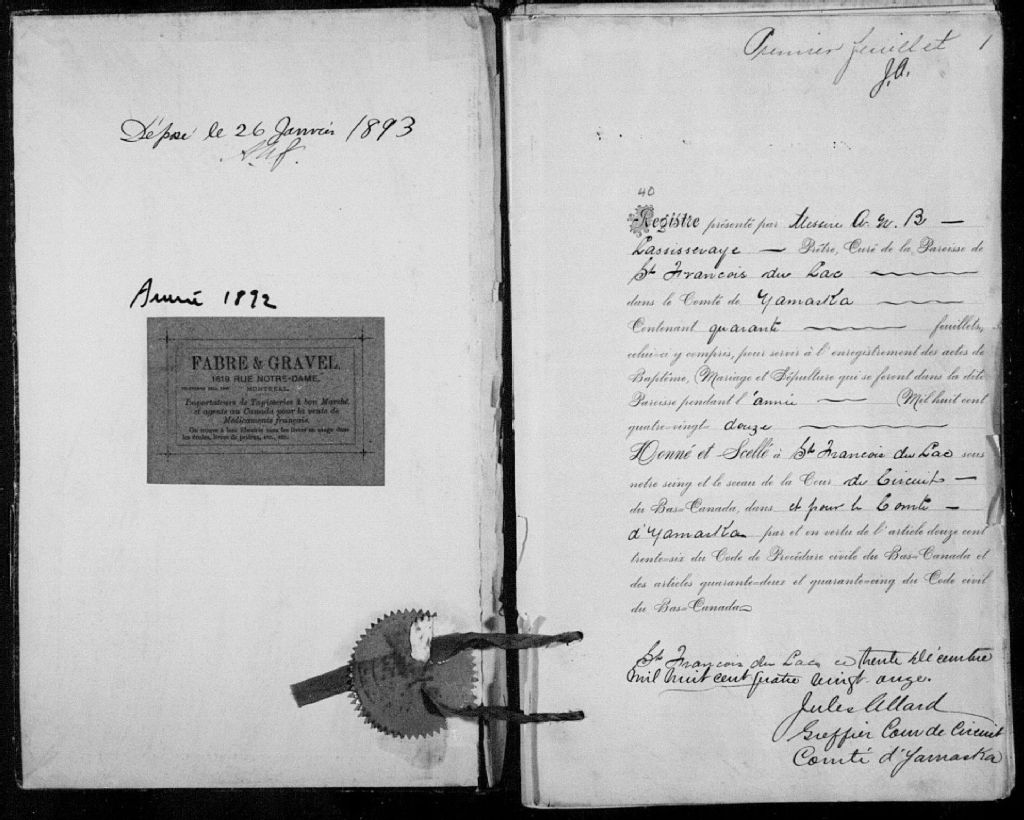 Déposé le 26 Janvier 1893
Année 1892
FABRE & GRAVEL,
1619 RUE NOTRE-DAME,
MONTREAL.
Importateurs de Tapisseries à bon Marché,
et agents au Canada pour la vente de
Médicaments français.
On trouve à leur librairie tous les livres en usage dans
les écoles, livres de prières, etc., etc.
Premier feuillet 1
J.A.
40
Registre présenté par Messire A. M. B —
— Prêtre, Curé de la Paroisse de
St Francois du Lac
dans le Comté de Yamaska
Contenant quarante feuillets,
celui-ci y compris, pour servir à l'enregistrement des actes de
Baptême, Mariage et Sépulture qui se feront dans la dite
Paroisse pendant l'année — Mil huit cent
quatre-vingt- douze
Donné et Scellé à St Francois du Lac sous
notre seing et le sceau de la Cour de Circuit —
du Bas=Canada, dans et pour le Comté —
d'Yamaska par et en vertu de l'article douze cent
trente=six du Code de Procédure civile du Bas=Canada et
des articles quarante=deux et quarante=cinq du Code civil
du Bas=Canada
St Francois du Lac ce trente Décembre
Mil huit cent quatre vingt onze.
Jules Allard
Greffier Cour de Circuit
Comté d'Yamaska